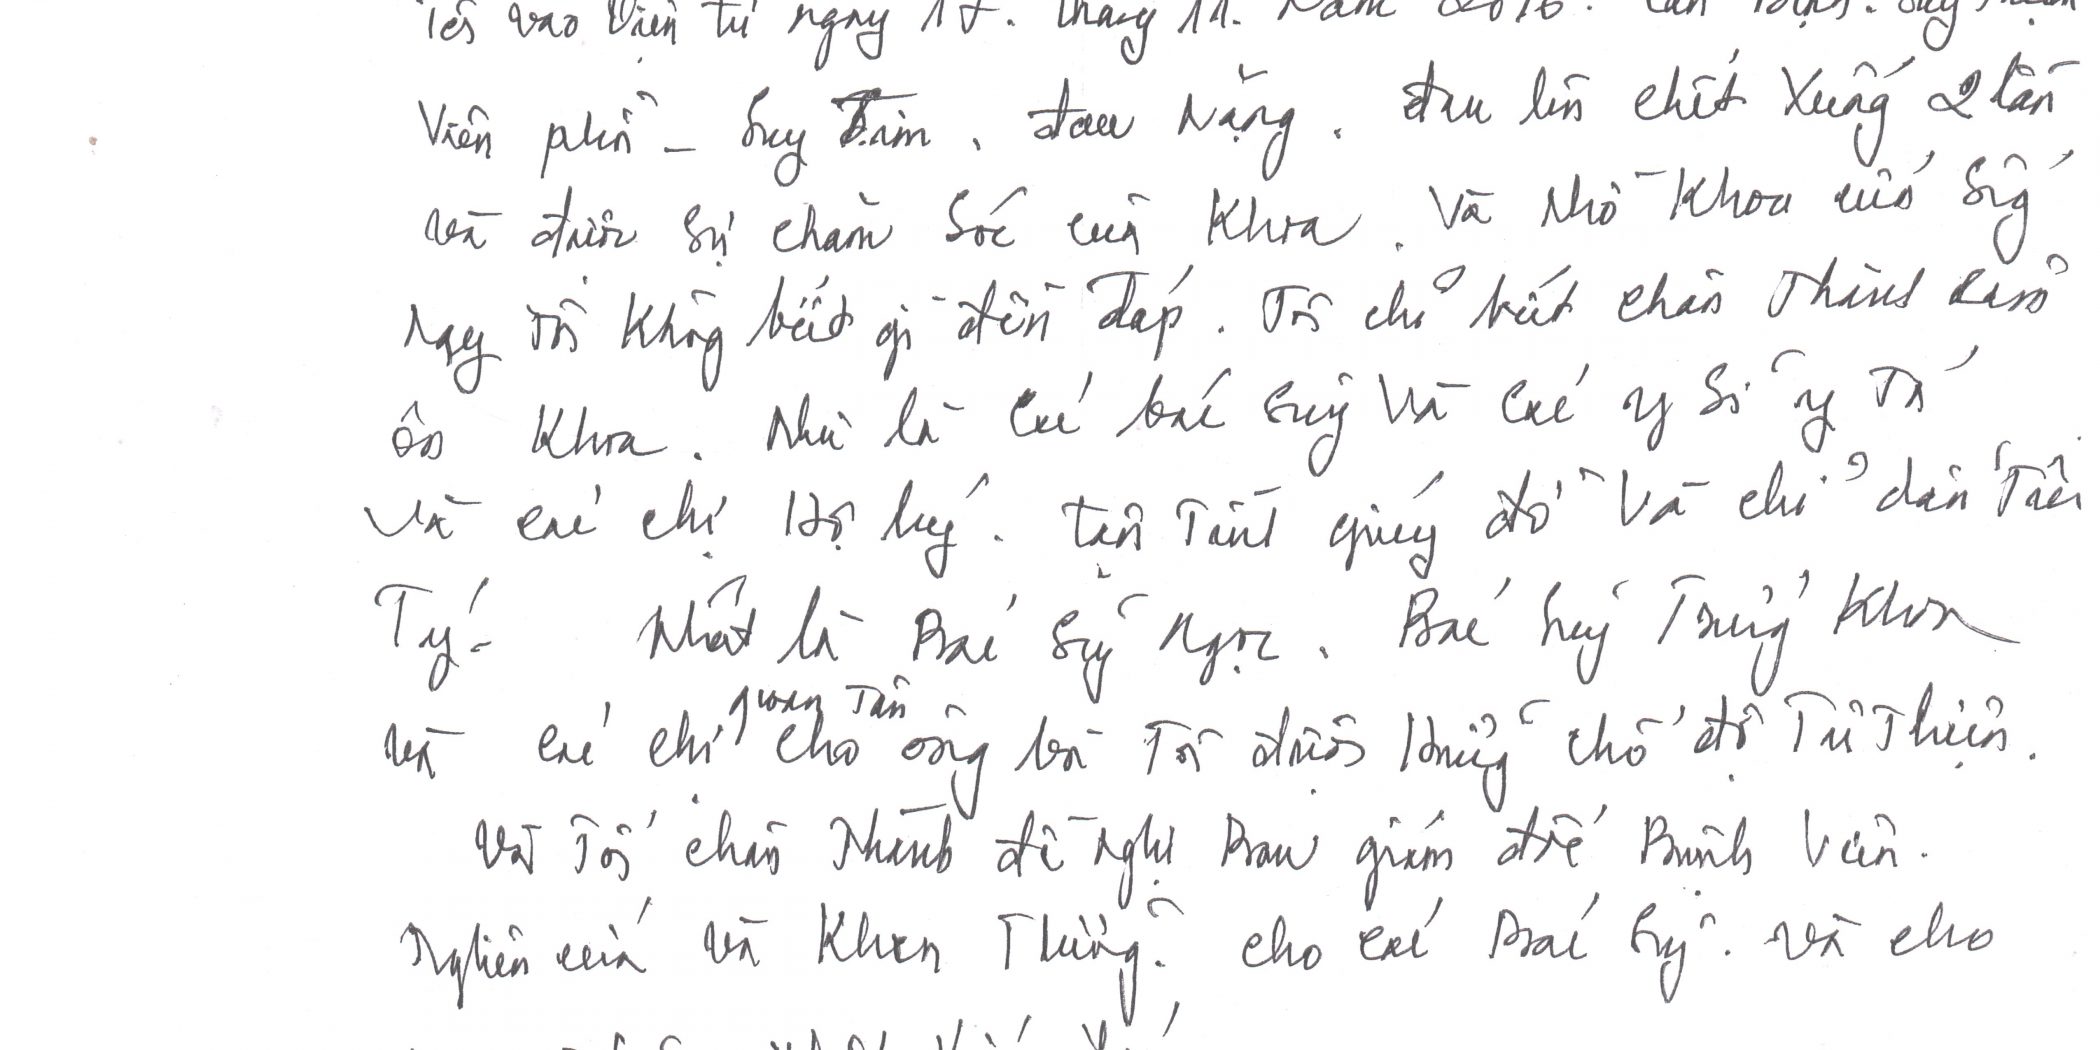 Tôi vào Viện từ ngày 17. tháng 11. Năm 2016. Căn bệnh. Suy thận
Viên phổi - Suy Tim, đau Nặng. đau lên chết Xuống 2 lần
và được sự chăm sóc của Khoa. Và Nhờ Khoa cứu sống
Nay tôi Không biết gì đền đáp. Tôi chỉ biết chân Thành cảm
ơn Khoa. Như là Các bác sỹ Và Các y Sĩ y Tá
Và các chị Hộ lý. tận Tình giúy đỡ Và chỉ dẫn Tân
Tý- Nhất là Bác sỹ Ngọc. Bác sỹ Trưởng Khoa
và các chị quan Tâm cho ông bà Tôi được Hưởng chế độ Từ Thiện.
Và Tôi chân Thành đề nghị Ban giám đốc Bệnh Viện.
Nghiên cứu và Khen Thưởng. cho các Bác sỹ. Và cho